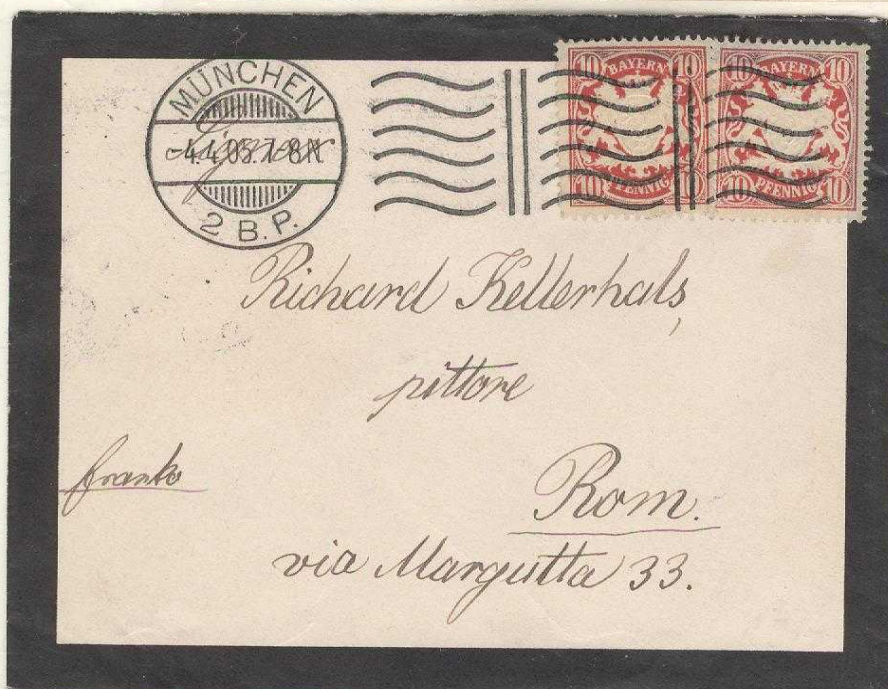 MÜNCHEN
-4.4.05.7-8N.
2 B.P.
10 BAYERN 10
10 PFENNIG 10
10 BAYERN 10
10 PFENNIG 10
Richard Kellerhals,
pittore
franko
Rom.
via Margutta 33.